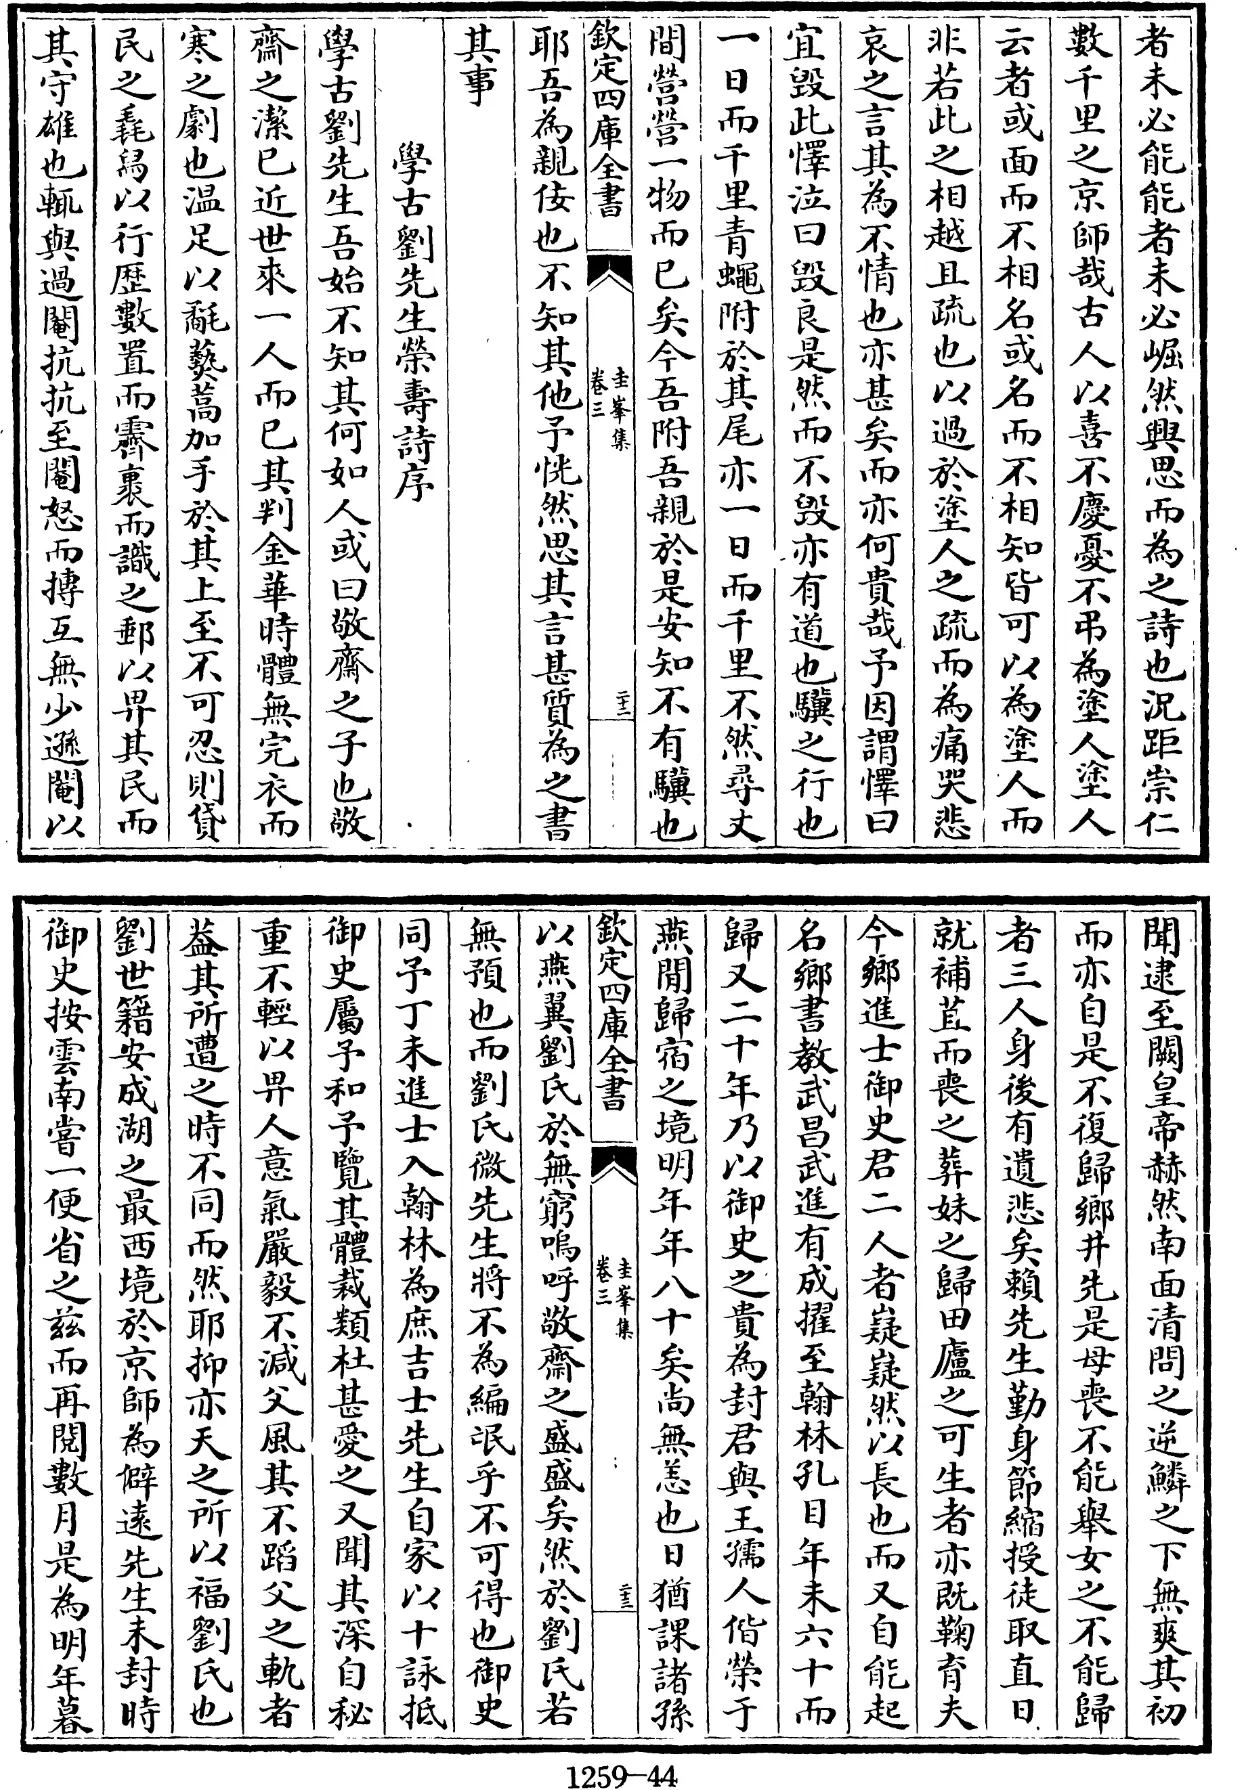 者未必能能者未必崛然興思而為之詩也況距崇仁
數千里之京師哉古人以喜不慶憂不弔為塗人塗人
云者或面而不相名或名而不相知皆可以為塗人而
非若此之相越且疏也以過於塗人之疏而為痛哭悲
哀之言其為不情也亦甚矣而亦何貴哉予因謂懌曰
宜毁此懌泣曰毁良是然而不毁亦有道也驥之行也
一日而千里青蠅附於其尾亦一日而千里不然尋丈
間營營一物而已矣今吾附吾親於是安知不有驥也
欽定四庫全書
圭峯集
卷三
二十二
耶吾為親佞也不知其他予恍然思其言甚質為之書
其事
學古劉先生榮壽詩序
學古劉先生吾始不知其何如人或曰敬齋之子也敬
齋之潔已近世來一人而已其判金華時體無完衣而
寒之劇也温足以氄藝蒿加手於其上至不可忍則貸
民之毳舄以行歴數置而霽裹而識之郵以畀其民而
其守雄也輒與過閹抗抗至閹怒而摶互無少遜閹以
聞逮至闕皇帝赫然南面清問之逆鱗之下無爽其初
而亦自是不復歸鄉井先是母喪不能舉女之不能歸
者三人身後有遺悲矣賴先生勤身節縮授徒取直日
就補苴而喪之葬妹之歸田廬之可生者亦既鞠育夫
今鄉進士御史君二人者嶷嶷然以長也而又自能起
名鄉書教武昌武進有成擢至翰林孔目年未六十而
歸又二十年乃以御史之貴為封君與王孺人偕榮于
燕閒歸宿之境明年年八十矣尚無恙也日猶課諸孫
欽定四庫全書
圭峯集
卷三
二十三
以燕翼劉氏於無窮嗚呼敬齋之盛盛矣然於劉氏若
無預也而劉氏微先生將不為編氓乎不可得也御史
同予丁未進士入翰林為庶吉士先生自家以十詠抵
御史屬予和予覽其體裁類杜甚愛之又聞其深自秘
重不輕以畀人意氣嚴毅不減父風其不蹈父之軌者
葢其所遭之時不同而然耶抑亦天之所以福劉氏也
劉世籍安成湖之最西境於京師為僻逺先生未封時
御史按雲南嘗一便省之兹而再閱數月是為明年暮
1259—44